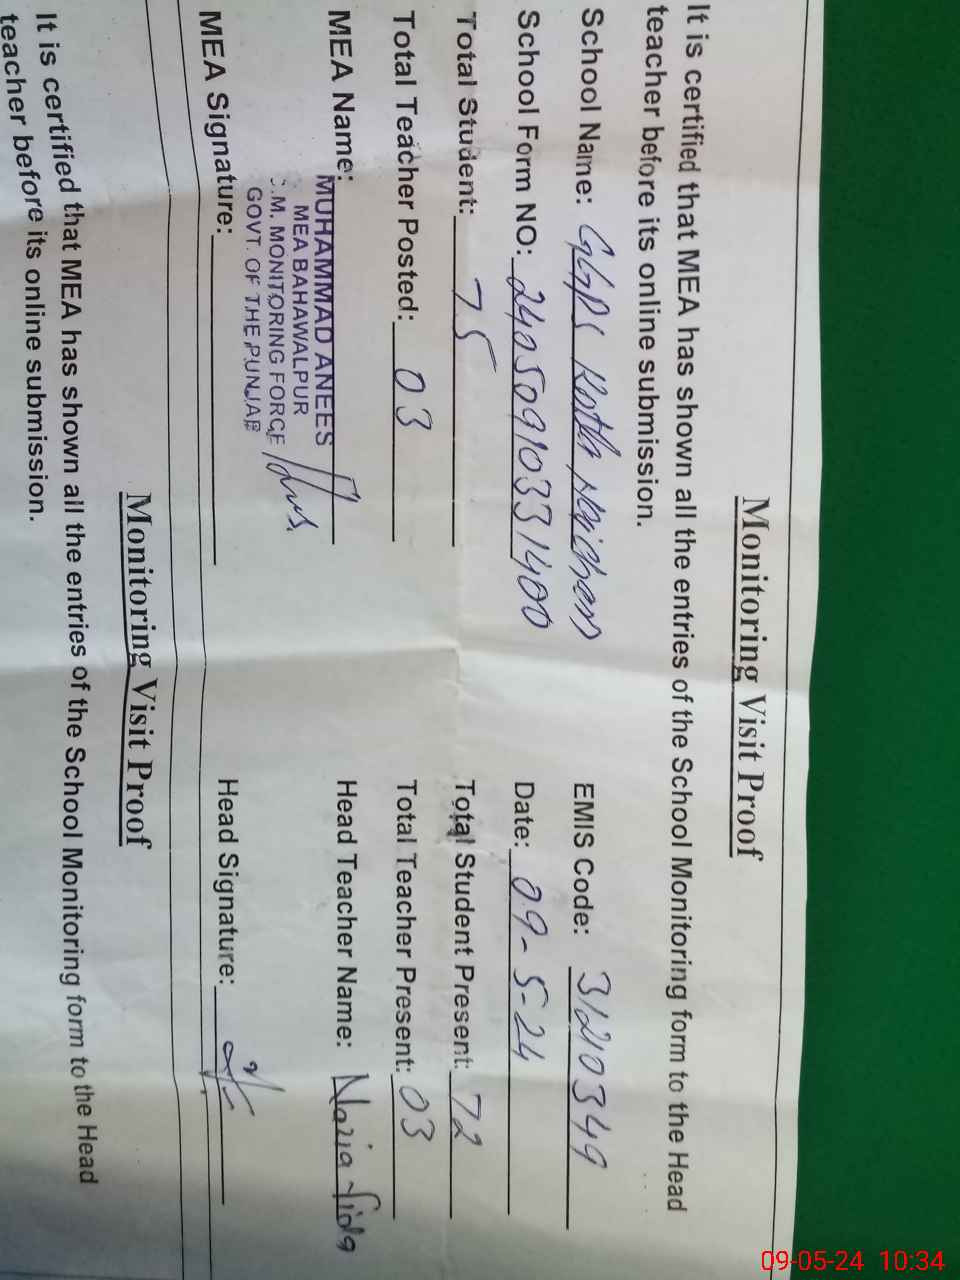 Monitoring Visit Proof
It is certified that MEA has shown all the entries of the School Monitoring form to the Head
teacher before its online submission.
School Name: GGPS Kotla EMIS Code: 31210349
School Form NO: 240509103331400 Date: 09-5-24
Total Student: 75 Total Student Present: 72
Total Teacher Posted: 03 Total Teacher Present: 03
MEA Name: MUHAMMAD ANEES Head Teacher Name: Nazia Fida
MEA BAHAWALPUR
.M. MONITORING FORCE
GOVT. OF THE PUNJAB
MEA Signature: Head Signature:
Monitoring Visit Proof
It is certified that MEA has shown all the entries of the School Monitoring form to the Head
teacher before its online submission.
09-05-24 10:34